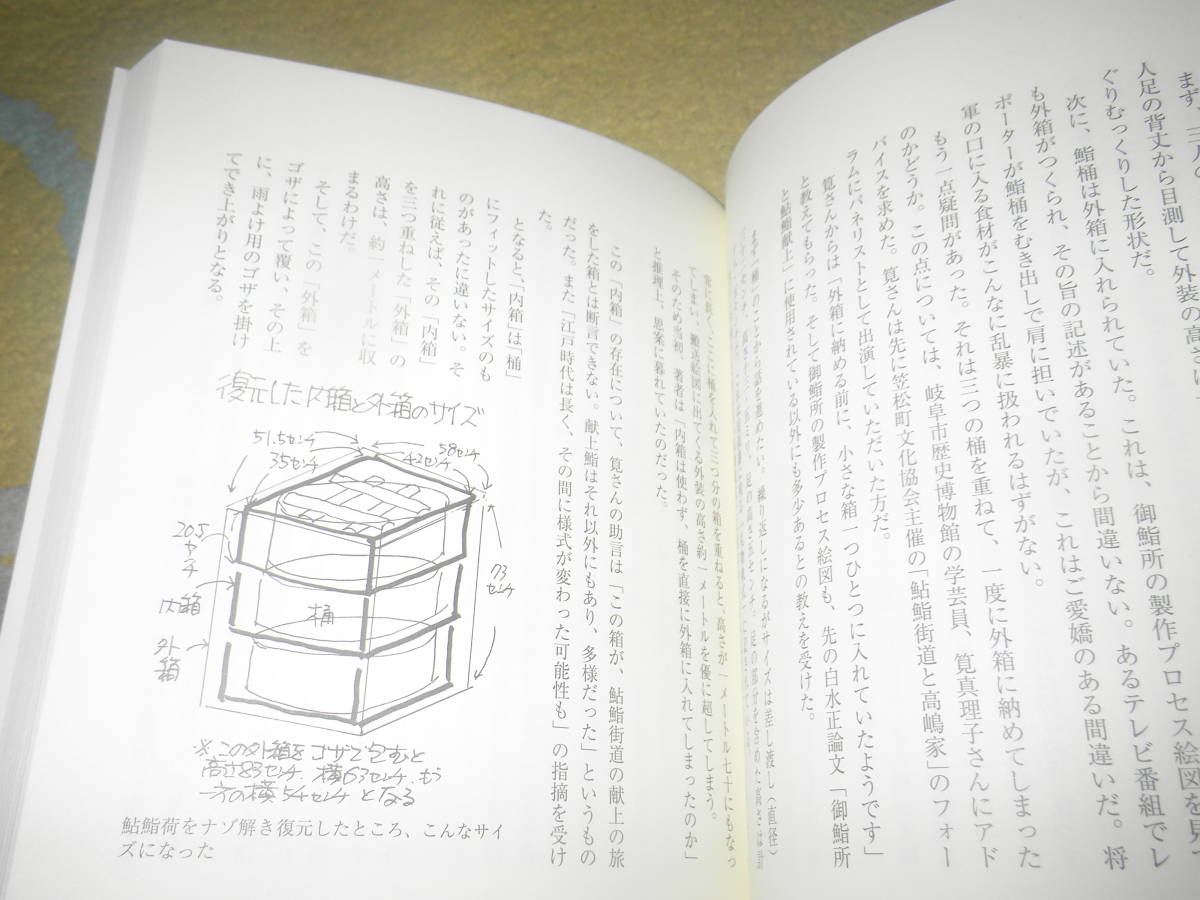 まず、三人の
人足の背丈から目測して外装の高さは
ぐりむっくりした形状だ。
次に、鮨桶は外箱に入れられていた。これは、御鮨所の製作プロセス絵図を見て
も外箱がつくられ、その旨の記述があることから間違いない。あるテレビ番組でレ
ポーターが鮨桶をむき出しで肩に担いでいたが、これはご愛嬌のある間違いだ。将
軍の口に入る食材がこんなに乱暴に扱われるはずがない。
もう一点疑問があった。それは三つの桶を重ねて、一度に外箱に納めてしまった
のかどうか。この点については、岐阜市歴史博物館の学芸員、筧真理子さんにアド
バイスを求めた。筧さんは先に笠松町文化協会主催の「鮎鮨街道と高嶋家」のフォー
ラムにパネリストとして出演していただいた方だ。
筧さんからは「外箱に納める前に、小さな箱一つひとつに入れていたようです」
と教えてもらった。そして御鮨所の製作プロセス絵図も、先の白水正論文「御鮨所
と鮎鮨献上」に使用されている以外にも多少あるとの教えを受けた。
まず「桶」のことから話を進めたい。繰り返しになるがサイズは差し渡し（直径）
常に長く、ここに桶を入れて三つ分の箱を重ねると、高さが一メートル七十にもなっ
てしまい、輸送絵図に出てくる外装の高さ約一メートルを優に超してしまう。
そのため当初、著者は「内箱は使わず、桶を直接に外箱に入れてしまったのか」
と推理上、思案に暮れていたのだった。
この「内箱」の存在について、筧さんの助言は「この箱が、鮎鮨街道の献上の旅
をした箱とは断言できない。献上鮨はそれ以外にもあり、多様だった」というもの
だった。また「江戸時代は長く、その間に様式が変わった可能性も」の指摘を受け
た。
となると、「内箱」は「桶」
にフィットしたサイズのも
のがあったに違いない。そ
れに従えば、その「内箱」
を三つ重ねした「外箱」の
高さは、約一メートルに収
まるわけだ。
そして、この「外箱」を
ゴザによって覆い、その上
に、雨よけ用のゴザを掛け
てでき上がりとなる。
復元した内箱と外箱のサイズ
51.5センチ
35センチ
58センチ
42センチ
20.5
センチ
内箱
外
箱
桶
73
センチ
※この外箱をゴザで包むと
高さ83センチ.横63センチ.もう
一方の横54センチとなる
鮎鮨荷をナゾ解き復元したところ、こんなサイ
ズになった